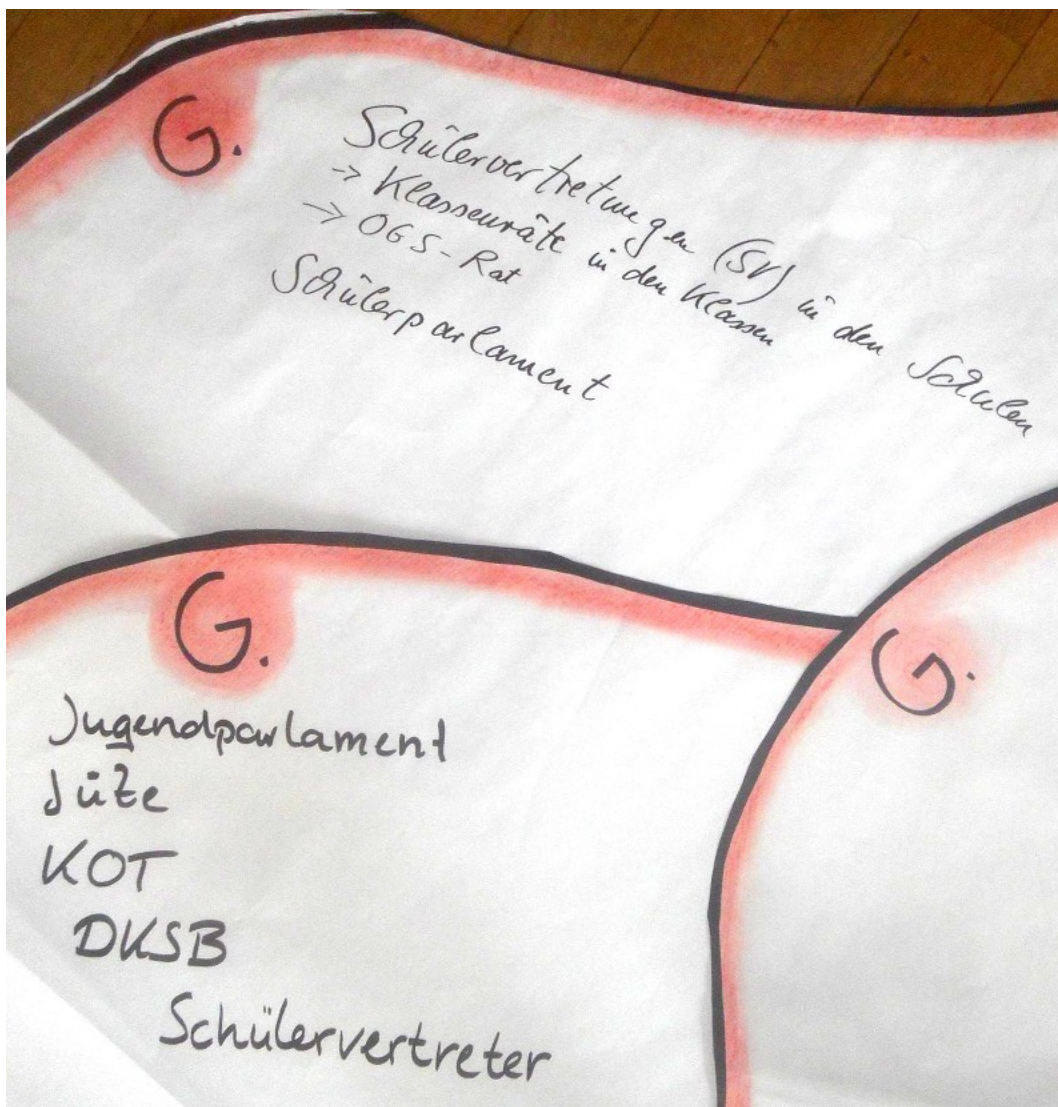 G.
Schülervertretungen (SV) in den Schulen
-> Klassenräte in den Klassen
-> OGS-Rat
Schülerparlament
G.
Jugendparlament
Jüze
KOT
DKSB
Schülervertreter
G.